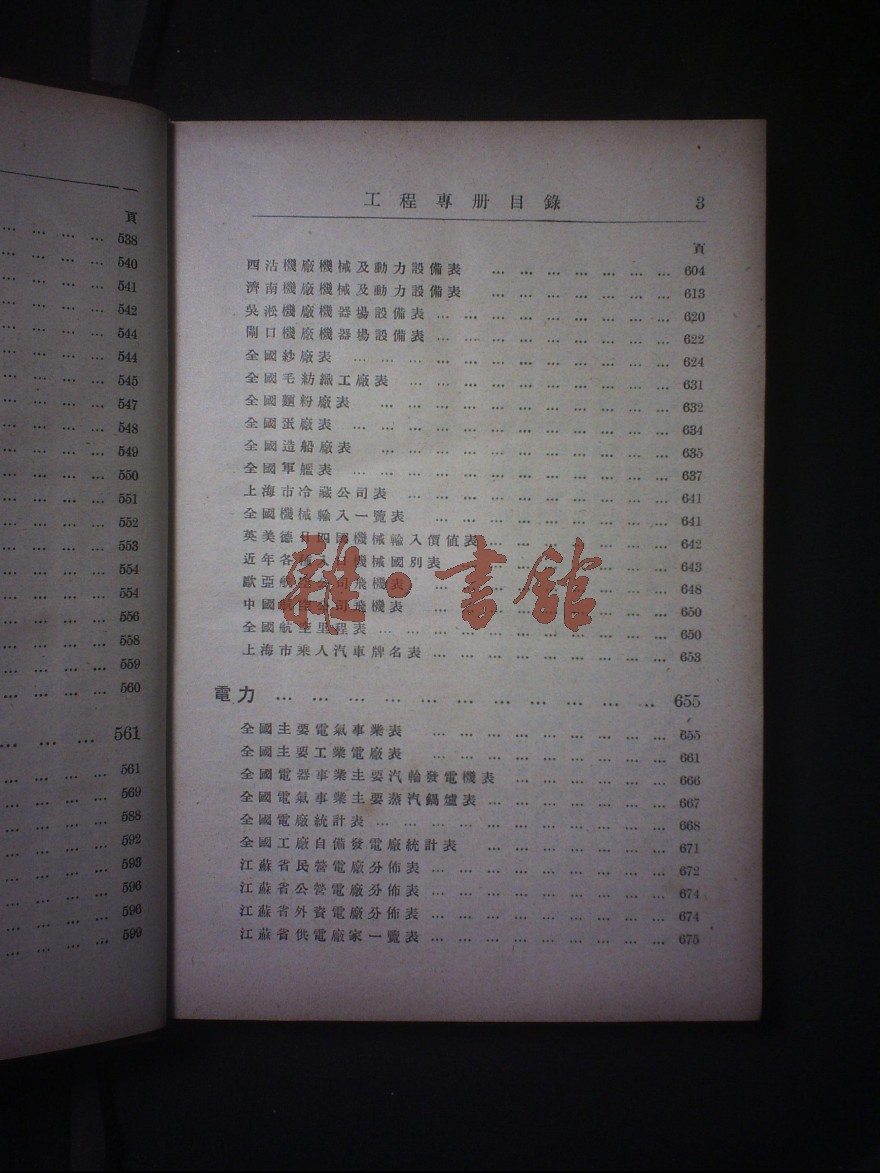 頁
… … … … 538
… … … … 540
… … … … 541
… … … … 542
… … … … 544
… … … … 544
… … … … 545
… … … … 547
… … … … 548
… … … … 549
… … … … 550
… … … … 551
… … … … 552
… … … … 553
… … … … 554
… … … … 554
… … … … 556
… … … … 558
… … … … 559
… … … … 560
… … … … 561
… … … … 561
… … … … 569
… … … … 588
… … … … 592
… … … … 593
… … … … 596
… … … … 596
… … … … 599
工程專册目錄 3
頁
四沽機廠機械及動力設備表 … … … … … … … … 604
濟南機廠機械及動力設備表 … … … … … … … … 613
吳淞機廠機器場設備表 … … … … … … … … … 620
閘口機廠機器場設備表 … … … … … … … … … 622
全國紗廠表 … … … … … … … … … … … 624
全國毛紡織工廠表 … … … … … … … … … … 631
全國麵粉廠表 … … … … … … … … … … … 632
全國蛋廠表 … … … … … … … … … … … 634
全國造船廠表 … … … … … … … … … … … 635
全國軍艦表 … … … … … … … … … … … 637
上海市冷藏公司表 … … … … … … … … … … 641
全國機械輸入一覽表 … … … … … … … … … 641
英美德日四國機械輸入價值表 … … … … … … … … 642
近年各種入口機械國別表 … … … … … … … … … 643
歐亞航空公司飛機表 … … … … … … … … … 648
中國航空公司飛機表 … … … … … … … … … 650
全國航空里程表 … … … … … … … … … … … 650
上海市乘人汽車牌名表 … … … … … … … … … 653
電力 … … … … … … … … … … … 655
全國主要電氣事業表 … … … … … … … … … 655
全國主要工業電廠表 … … … … … … … … … 661
全國電器事業主要汽輪發電機表 … … … … … … … 666
全國電氣事業主要蒸汽鍋爐表 … … … … … … … … 667
全國電廠統計表 … … … … … … … … … … … 668
全國工廠自備發電廠統計表 … … … … … … … … 671
江蘇省民營電廠分佈表 … … … … … … … … … 672
江蘇省公營電廠分佈表 … … … … … … … … … 674
江蘇省外資電廠分佈表 … … … … … … … … … 674
江蘇省供電廠家一覽表 … … … … … … … … … 675
雜·書館